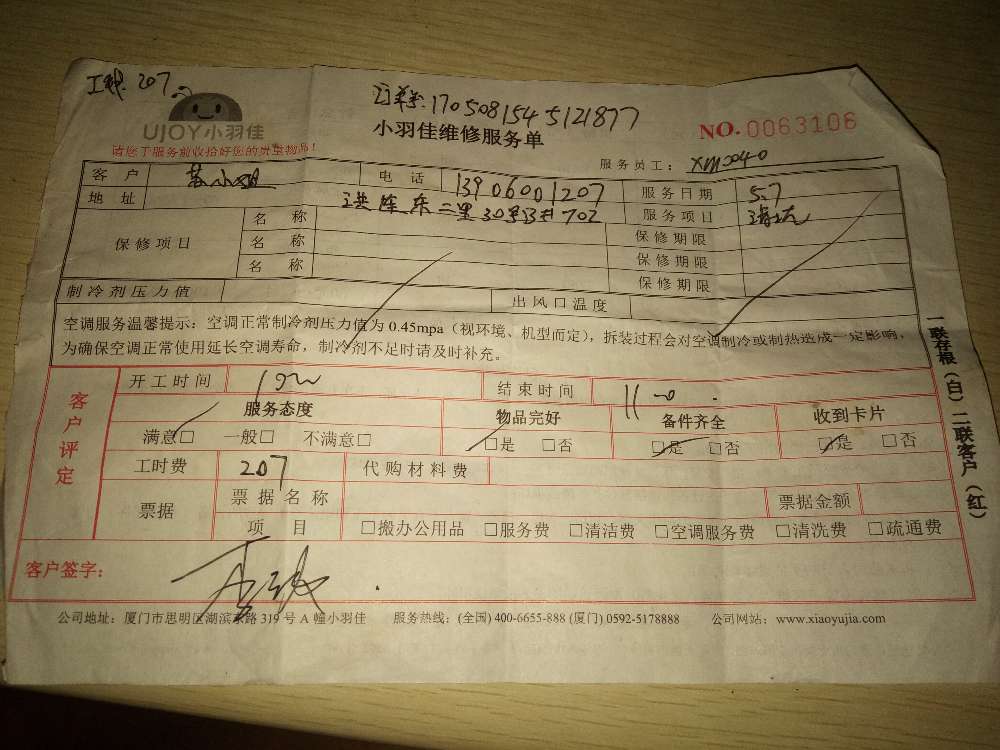 工费. 207
订单号. 1705081545121877
UJOY小羽佳
小羽佳维修服务单
NO.0063106
请您于服务前收拾好您的贵重物品!
服务员工: XM0040
客户 苏小姐 电话 13906001207 服务日期 5.7
地址 洪莲东二里30号 702 服务项目 清洗
保修项目 名称 保修期限
名称 保修期限
名称 保修期限
制冷剂压力值 出风口温度
空调服务温馨提示:空调正常制冷剂压力值为 0.45mpa(视环境、机型而定),拆装过程会对空调制冷或制热造成一定影响,
为确保空调正常使用延长空调寿命,制冷剂不足时请及时补充。
一联存根(白)二联客户(红)
客户评定
开工时间 结束时间
服务态度 物品完好 备件齐全 收到卡片
满意□ 一般□ 不满意□ □是 □否 □是 □否 □是 □否
工时费 207 代购材料费
票据 票据名称 票据金额
项目 □搬办公用品 □服务费 □清洁费 □空调服务费 □清洗费 □疏通费
客户签字:
公司地址:厦门市思明区湖滨东路 319 号 A 幢小羽佳 服务热线:(全国) 400-6655-888 (厦门) 0592-5178888 公司网站:www.xiaoyujia.com